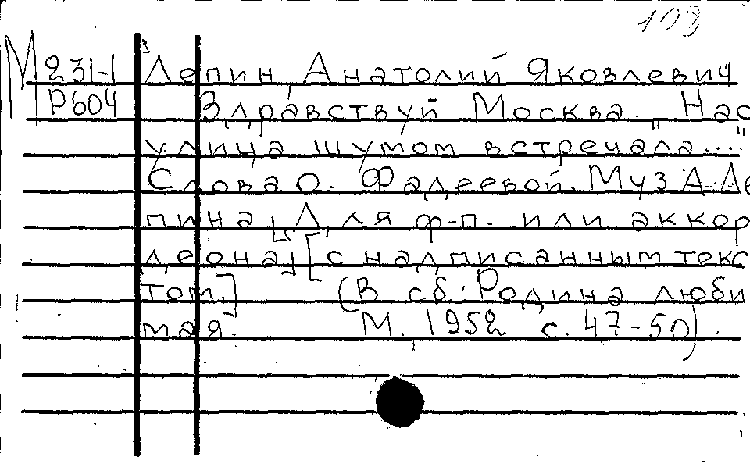 103
М 231-1 Лепин, Анатолий Яковлевич
Р604 Здравствуй Москва. „Нас
улица шумом встречала..."
Слова О. Фадеевой. Муз А. Ле
пина [Для ф-п. или аккор
деона] [с надписанным текс
том.] (В сб.: Родина люби
мая. М. 1952 с. 47-50).